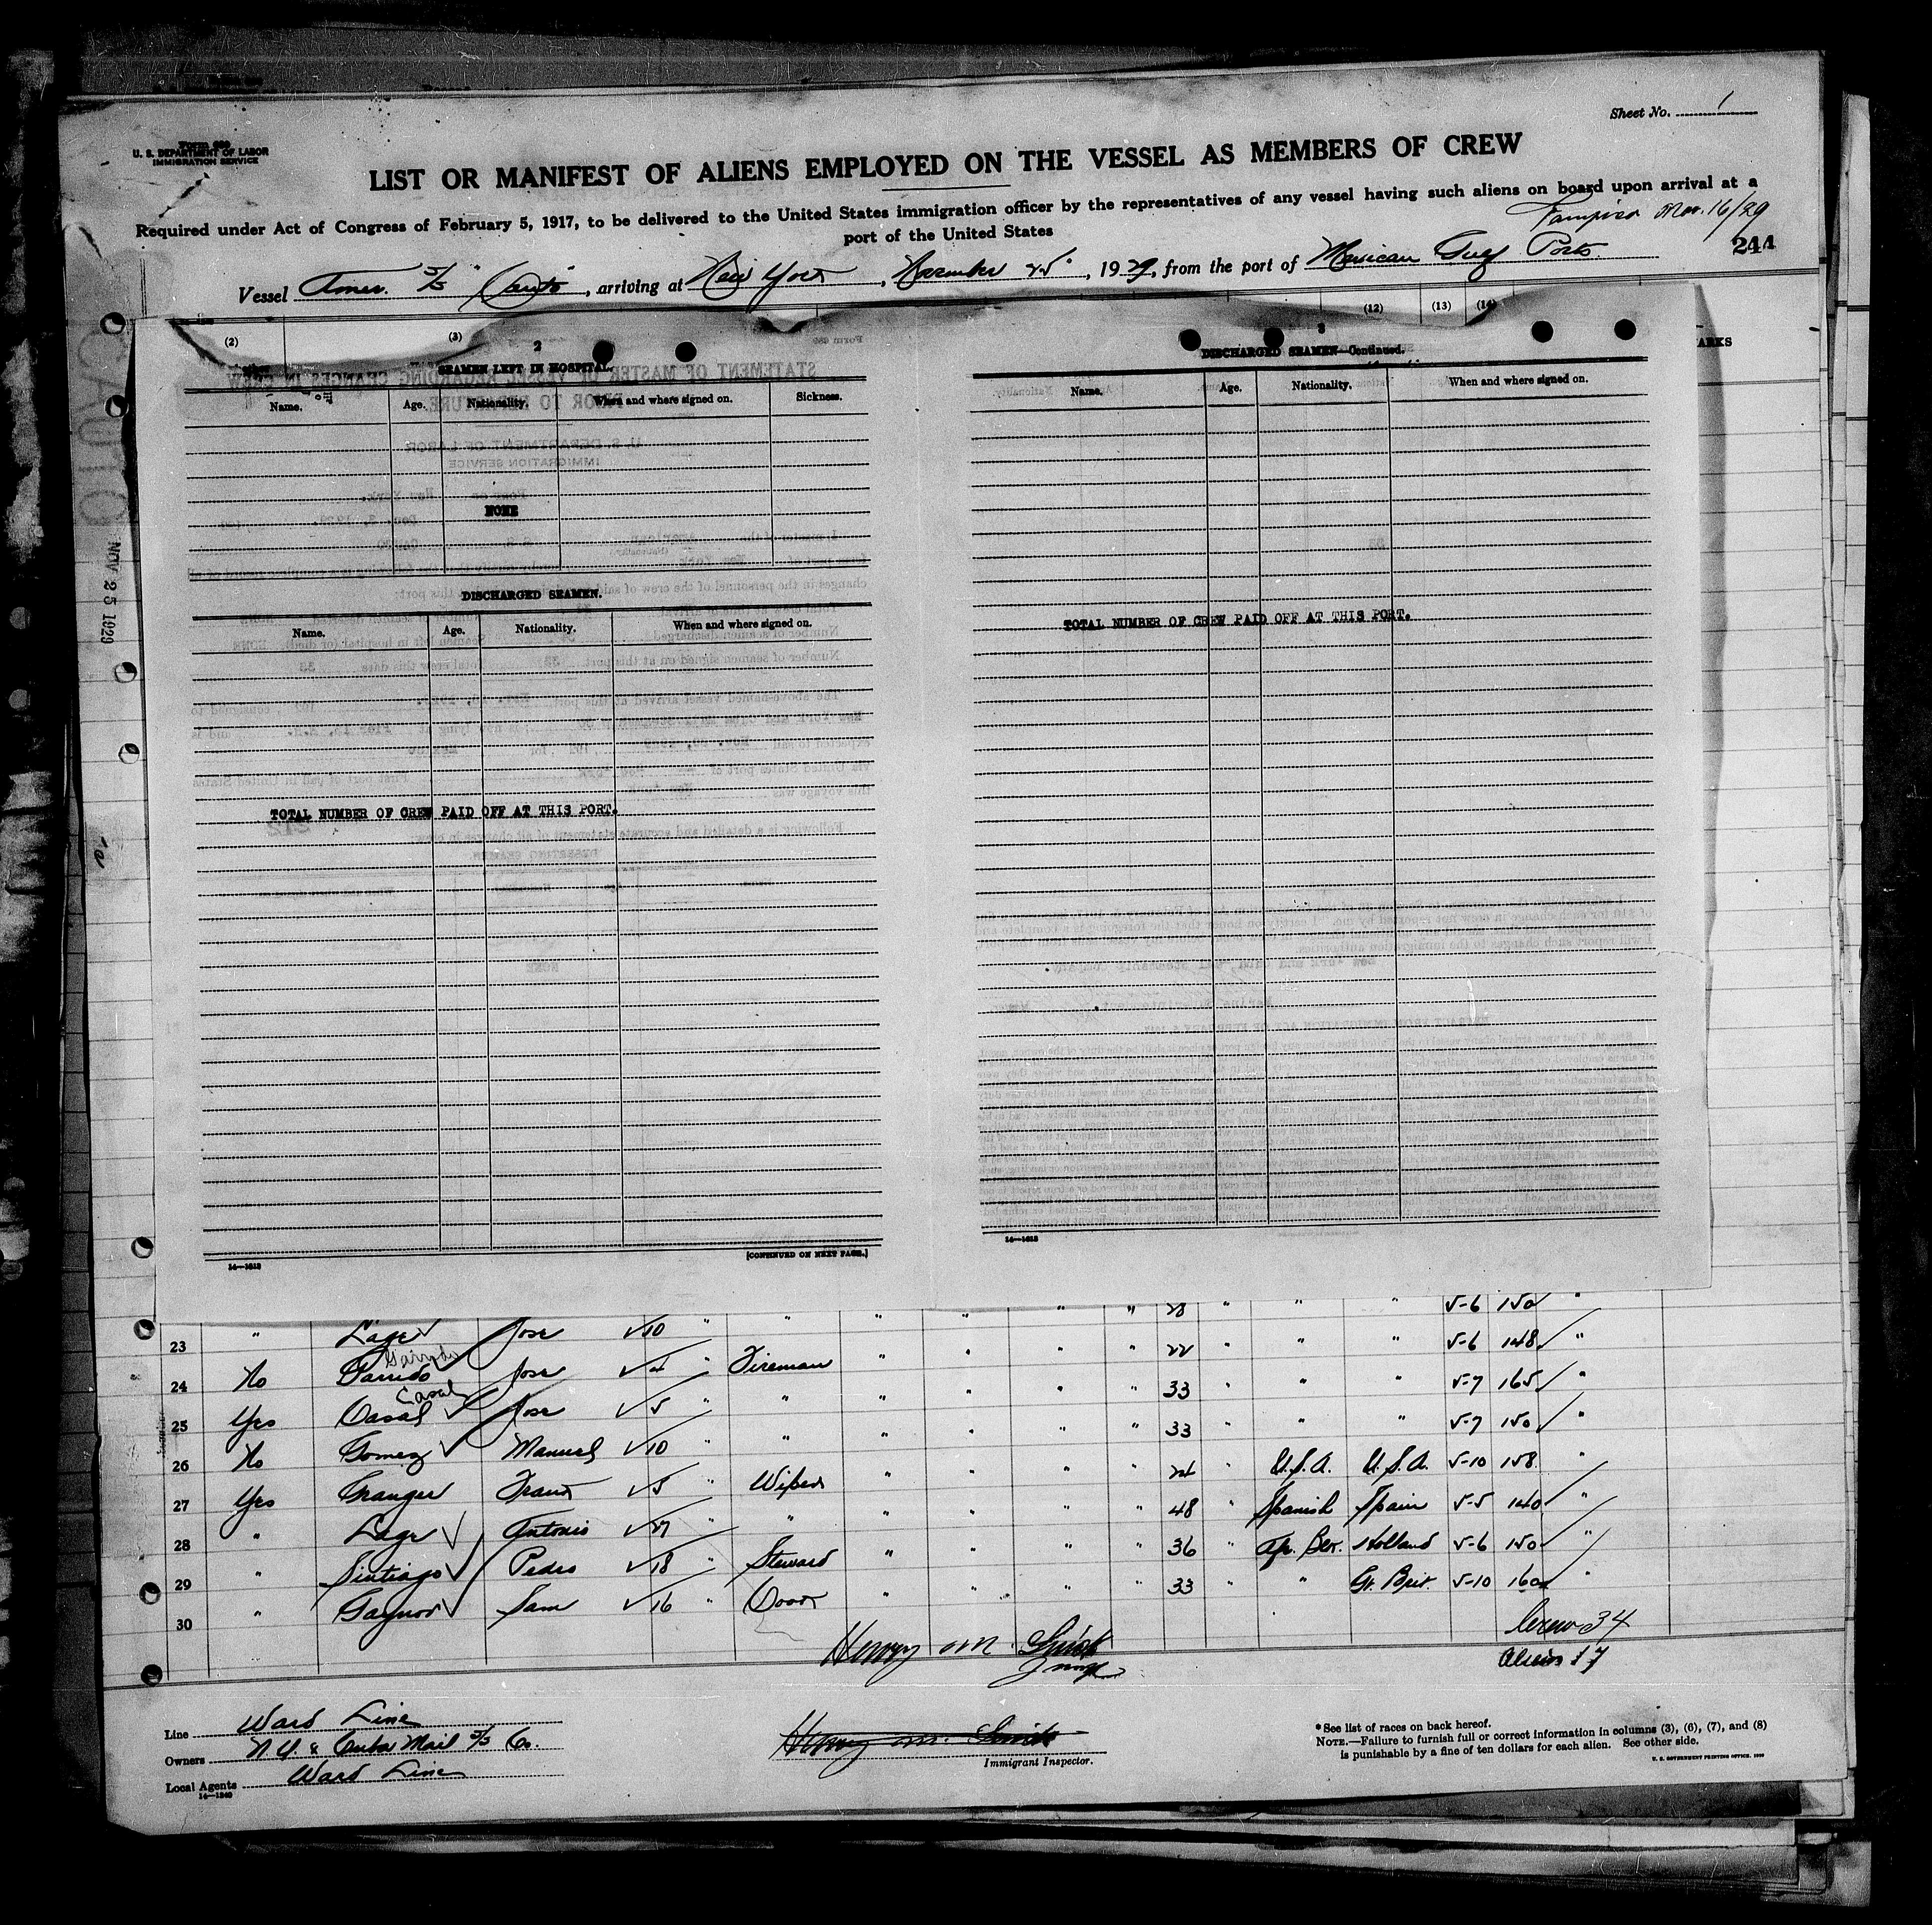 Sheet No. 1
Form 680
U. S. DEPARTMENT OF LABOR
IMMIGRATION SERVICE
LIST OR MANIFEST OF ALIENS EMPLOYED ON THE VESSEL AS MEMBERS OF CREW
Required under Act of Congress of February 5, 1917, to be delivered to the United States immigration officer by the representatives of any vessel having such aliens on board upon arrival at a
port of the United States
Tampico Nov. 16/29
244
Vessel Amer. S/S "Cauto", arriving at New York, November 25", 1929, from the port of Mexican Gulf Ports.
(2) (3) (12) (13) (14)
ARKS
CAUTO
NOV 25 1929
2
SEAMEN LEFT IN HOSPITAL.
Name. Age. Nationality. When and where signed on. Sickness.
NONE
DISCHARGED SEAMEN.
Name. Age. Nationality. When and where signed on.
TOTAL NUMBER OF CREW PAID OFF AT THIS PORT.
14—1613
[CONTINUED ON NEXT PAGE.]
3
DISCHARGED SEAMEN—Continued.
Name. Age. Nationality. When and where signed on.
TOTAL NUMBER OF CREW PAID OFF AT THIS PORT.
14—1613
28 " " " 5-6 150 "
23 " Lage Jose 10 " " " " " " 22 " " " 5-6 148 "
Garrido
24 No Garrido Jose 4 " Fireman " " " " 33 " " " 5-7 165 "
Casal
25 Yes Casal Jose 5 " " " " " " 33 " " " 5-7 150 "
26 No Gomez Manuel 10 " " " " " " 24 " U.S.A. U.S.A. 5-10 158 "
27 Yes Granger Frank 5 " Wiper " " " " 48 " Spanish Spain 5-5 140 "
28 " Lage Antonio 27 " " " " " " 36 " Af. Blk. Holland 5-6 150 "
29 " Sintiago Pedro 18 " Steward " " " " 33 " " Gt. Brit. 5-10 160 "
30 " Gaynor Sam 16 " Cook " " " "
Crew 34
Aliens 17
Henry M.
Line Ward Line
Owners N.Y. & Cuba Mail S/S Co.
Local Agents Ward Line
14—1240
Henry M.
Immigrant Inspector.
* See list of races on back hereof.
NOTE.—Failure to furnish full or correct information in columns (3), (6), (7), and (8)
is punishable by a fine of ten dollars for each alien. See other side.
U. S. GOVERNMENT PRINTING OFFICE